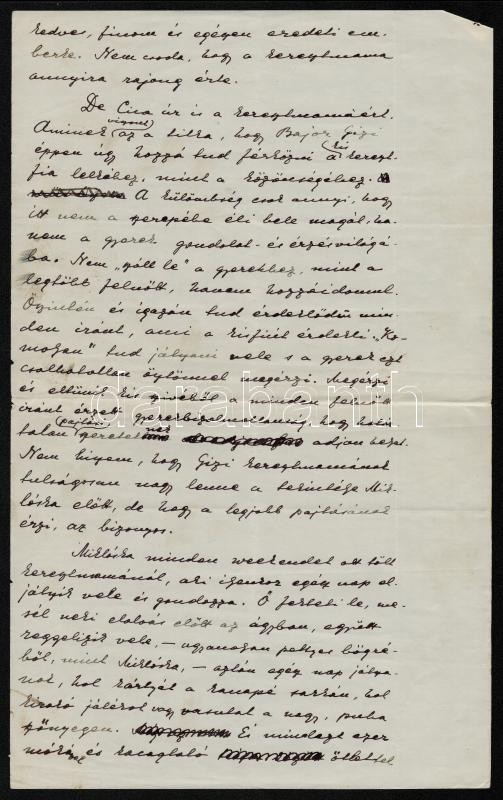 kedves, finom és egészen eredeti em-
berke. Nem csoda, hogy a keresztmama
annyira rajong érte.
De Cica úr is a keresztmamáért.
Aminek viszont az a titka, hogy Bajor Gizi
éppen úgy hozzá tud férkőzni a kis kereszt-
fia lelkéhez, mint a közönségéhez.
A külömbség csak annyi, hogy
itt nem a szerepébe éli bele magát, ha-
nem a gyerek gondolat- és érzésvilágá-
ba. Nem „száll le" a gyerekhez, mint a
legtöbb felnőtt, hanem hozzáidomul.
Őszintén és igazán tud érdeklődni min-
den iránt, ami a kisfiút érdekli. „Ko-
molyan" tud játszani vele s a gyerek ezt
csalhatatlan ösztönnel megérzi. Megérzi
és eltűnik kis szivéből a minden felnőtt
iránt érzett gyerekbizalmatlanság, hogy
pajtási szeretetnek adjon helyet.
Nem hiszem, hogy Gizi keresztmamának
tulságosan nagy lenne a tekintélye Mik-
lóska előtt, de hogy a legjobb pajtásának
érzi, az bizonyos.
Miklóska minden weekendet ott tölt
keresztmamánál, aki ilyenkor egész nap el-
játszik vele és gondozza. Ő fekteti le, me-
sél neki elalvás előtt az ágyban, együtt
reggelizik vele, – ugyanolyan pettyes bögré-
ből, mint Miklóska, – aztán egész nap játsza-
nak, hol kártyát a kanapé sarkán, hol
kirakó játékot vagy vasutat a nagy, puha
szőnyegen. És mindezt ezer
mókával és kacagtató ötlettel